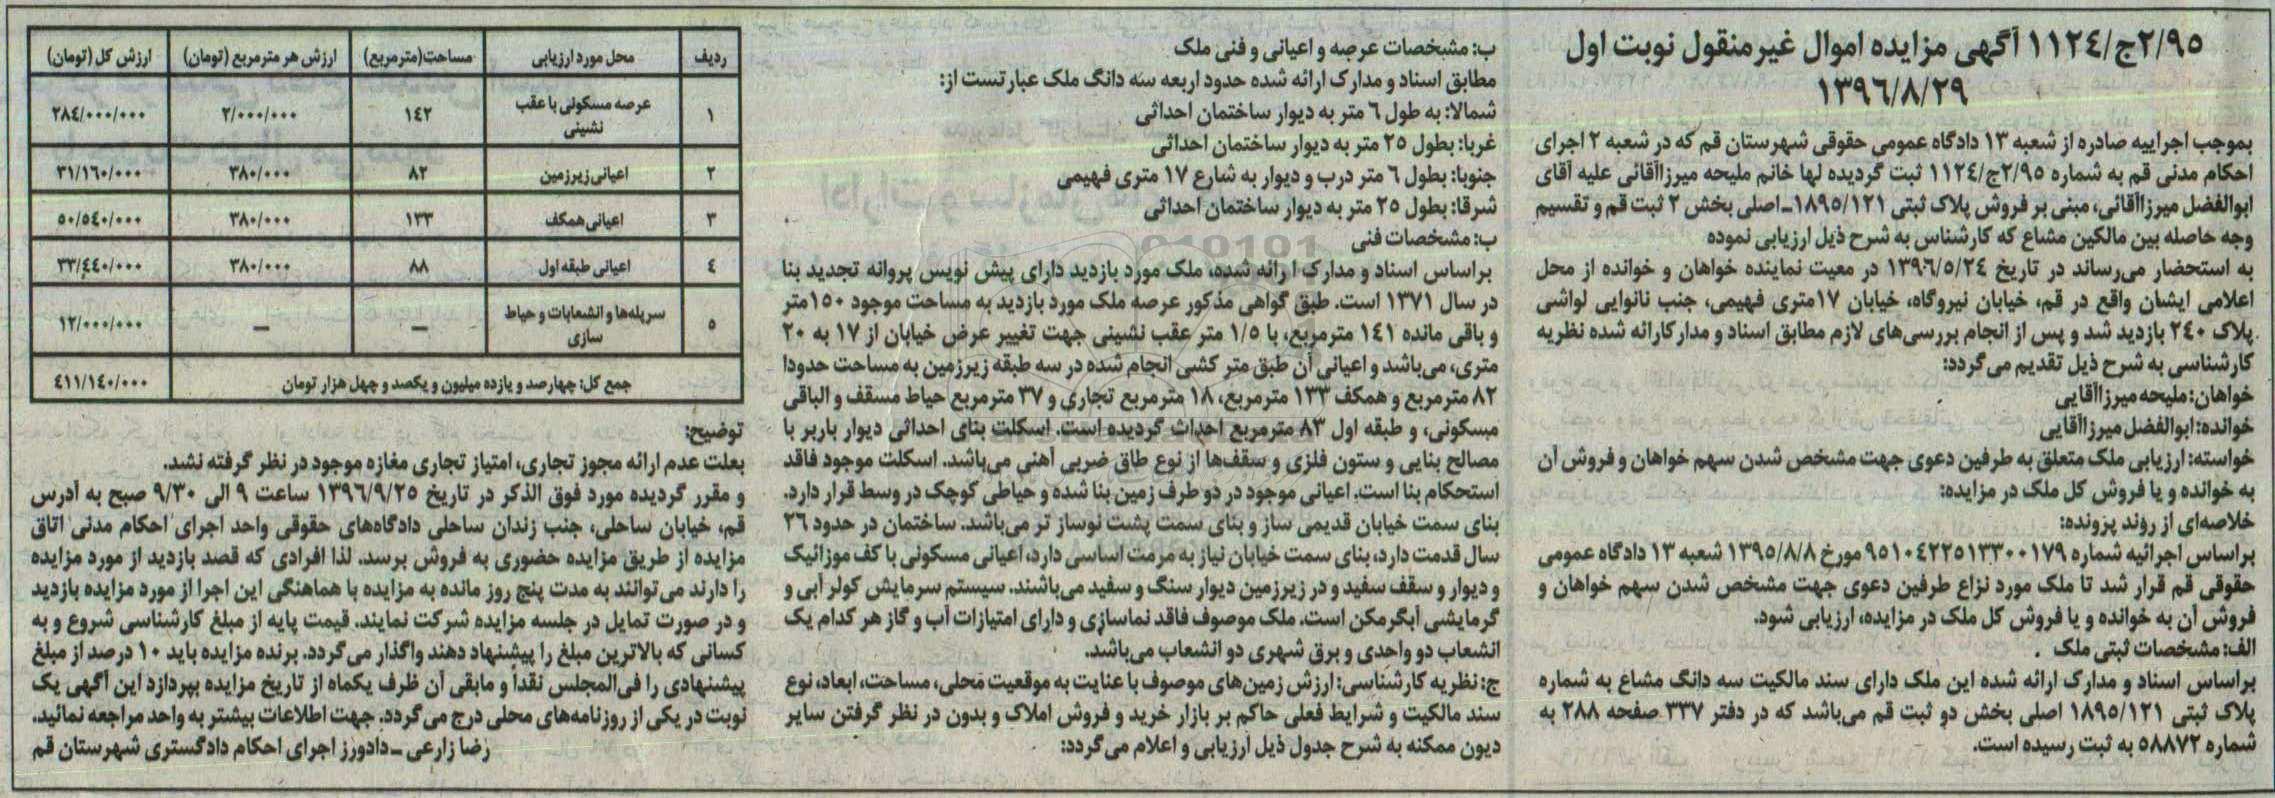 ۲/۹۵ج/۱۱۲٤ آگهی مزایده اموال غیرمنقول نوبت اول
۱۳۹٦/۸/۲۹
بموجب اجراییه صادره از شعبه ۱۳ دادگاه عمومی حقوقی شهرستان قم که در شعبه ۲ اجرای
احکام مدنی قم به شماره ۲/۹۵ج/۱۱۲٤ ثبت گردیده لها خانم ملیحه میرزاآقائی علیه آقای
ابوالفضل میرزاآقائی، مبنی بر فروش پلاک ثبتی ۱۸۹۵/۱۲۱ـ اصلی بخش ۲ ثبت قم و تقسیم
وجه حاصله بین مالکین مشاع که کارشناس به شرح ذیل ارزیابی نموده
به استحضار می‌رساند در تاریخ ۱۳۹٦/۵/۲٤ در معیت نماینده خواهان و خوانده از محل
اعلامی ایشان واقع در قم، خیابان نیروگاه، خیابان ۱۷متری فهیمی، جنب نانوایی لواشی
پلاک ۲٤۰ بازدید شد و پس از انجام بررسی‌های لازم مطابق اسناد و مدارکارائه شده نظریه
کارشناسی به شرح ذیل تقدیم می‌گردد:
خواهان: ملیحه میرزاآقایی
خوانده: ابوالفضل میرزاآقایی
خواسته: ارزیابی ملک متعلق به طرفین دعوی جهت مشخص شدن سهم خواهان و فروش آن
به خوانده و یا فروش کل ملک در مزایده:
خلاصه‌ای از روند پرونده:
براساس اجرائیه شماره ۹۵۱۰٤۲۲۵۱۳۳۰۰۱۷۹ مورخ ۱۳۹۵/۸/۸ شعبه ۱۳ دادگاه عمومی
حقوقی قم قرار شد تا ملک مورد نزاع طرفین دعوی جهت مشخص شدن سهم خواهان و
فروش آن به خوانده و یا فروش کل ملک در مزایده، ارزیابی شود.
الف: مشخصات ثبتی ملک
براساس اسناد و مدارک ارائه شده این ملک دارای سند مالکیت سه دانگ مشاع به شماره
پلاک ثبتی ۱۸۹۵/۱۲۱ اصلی بخش دو ثبت قم می‌باشد که در دفتر ۳۳۷ صفحه ۲۸۸ به
شماره ۵۸۸۷۲ به ثبت رسیده است.
ب: مشخصات عرصه و اعیانی و فنی ملک
مطابق اسناد و مدارک ارائه شده حدود اربعه سه دانگ ملک عبارتست از:
شمالا: به طول ٦ متر به دیوار ساختمان احداثی
غربا: بطول ۲۵ متر به دیوار ساختمان احداثی
جنوبا: بطول ٦ متر درب و دیوار به شارع ۱۷ متری فهیمی
شرقا: بطول ۲۵ متر به دیوار ساختمان احداثی
ب: مشخصات فنی
براساس اسناد و مدارک ارائه شده، ملک مورد بازدید دارای پیش نویس پروانه تجدید بنا
در سال ۱۳۷۱ است. طبق گواهی مذکور عرصه ملک مورد بازدید به مساحت موجود ۱۵۰متر
و باقی مانده ۱٤۱ مترمربع، با ۱/۵ متر عقب نشینی جهت تغییر عرض خیابان از ۱۷ به ۲۰
متری، می‌باشد و اعیانی آن طبق متر کشی انجام شده در سه طبقه زیرزمین به مساحت حدودا
۸۲ مترمربع و همکف ۱۳۳ مترمربع، ۱۸ مترمربع تجاری و ۳۷ مترمربع حیاط مسقف و الباقی
مسکونی، و طبقه اول ۸۳ مترمربع احداث گردیده است. اسکلت بنای احداثی دیوار باربر با
مصالح بنایی و ستون فلزی و سقف‌ها از نوع طاق ضربی آهنی می‌باشد. اسکلت موجود فاقد
استحکام بنا است. اعیانی موجود در دو طرف زمین بنا شده و حیاطی کوچک در وسط قرار دارد.
بنای سمت خیابان قدیمی ساز و بنای سمت پشت نوساز تر می‌باشد. ساختمان در حدود ۲٦
سال قدمت دارد، بنای سمت خیابان نیاز به مرمت اساسی دارد، اعیانی مسکونی با کف موزائیک
و دیوار و سقف سفید و در زیرزمین دیوار سنگ و سفید می‌باشند. سیستم سرمایش کولر آبی و
گرمایشی آبگرمکن است. ملک موصوف فاقد نماسازی و دارای امتیازات آب و گاز هر کدام یک
انشعاب دو واحدی و برق شهری دو انشعاب می‌باشد.
ج: نظریه کارشناسی: ارزش زمین‌های موصوف با عنایت به موقعیت محلی، مساحت، ابعاد، نوع
سند مالکیت و شرایط فعلی حاکم بر بازار خرید و فروش املاک و بدون در نظر گرفتن سایر
دیون ممکنه به شرح جدول ذیل ارزیابی و اعلام می‌گردد:
ردیف محل مورد ارزیابی مساحت(مترمربع) ارزش هر مترمربع (تومان) ارزش کل (تومان)
۱ عرصه مسکونی با عقب نشینی ۱٤۲ ۲/۰۰۰/۰۰۰ ۲۸٤/۰۰۰/۰۰۰
۲ اعیانی زیرزمین ۸۲ ۳۸۰/۰۰۰ ۳۱/۱٦۰/۰۰۰
۳ اعیانی همکف ۱۳۳ ۳۸۰/۰۰۰ ۵۰/۵٤۰/۰۰۰
٤ اعیانی طبقه اول ۸۸ ۳۸۰/۰۰۰ ۳۳/٤٤۰/۰۰۰
۵ سرپله‌ها و انشعابات و حیاط سازی — — ۱۲/۰۰۰/۰۰۰
جمع کل: چهارصد و یازده میلیون و یکصد و چهل هزار تومان ٤۱۱/۱٤۰/۰۰۰
توضیح:
بعلت عدم ارائه مجوز تجاری، امتیاز تجاری مغازه موجود در نظر گرفته نشد.
و مقرر گردیده مورد فوق الذکر در تاریخ ۱۳۹٦/۹/۲۵ ساعت ۹ الی ۹/۳۰ صبح به آدرس
قم، خیابان ساحلی، جنب زندان ساحلی دادگاه‌های حقوقی واحد اجرای احکام مدنی اتاق
مزایده از طریق مزایده حضوری به فروش برسد. لذا افرادی که قصد بازدید از مورد مزایده
را دارند می‌توانند به مدت پنج روز مانده به مزایده با هماهنگی این اجرا از مورد مزایده بازدید
و در صورت تمایل در جلسه مزایده شرکت نمایند. قیمت پایه از مبلغ کارشناسی شروع و به
کسانی که بالاترین مبلغ را پیشنهاد دهند واگذار می‌گردد. برنده مزایده باید ۱۰ درصد از مبلغ
پیشنهادی را فی‌المجلس نقداً و مابقی آن ظرف یکماه از تاریخ مزایده بپردازد این آگهی یک
نوبت در یکی از روزنامه‌های محلی درج می‌گردد. جهت اطلاعات بیشتر به واحد مراجعه نمائید.
رضا زارعی ـ دادورز اجرای احکام دادگستری شهرستان قم